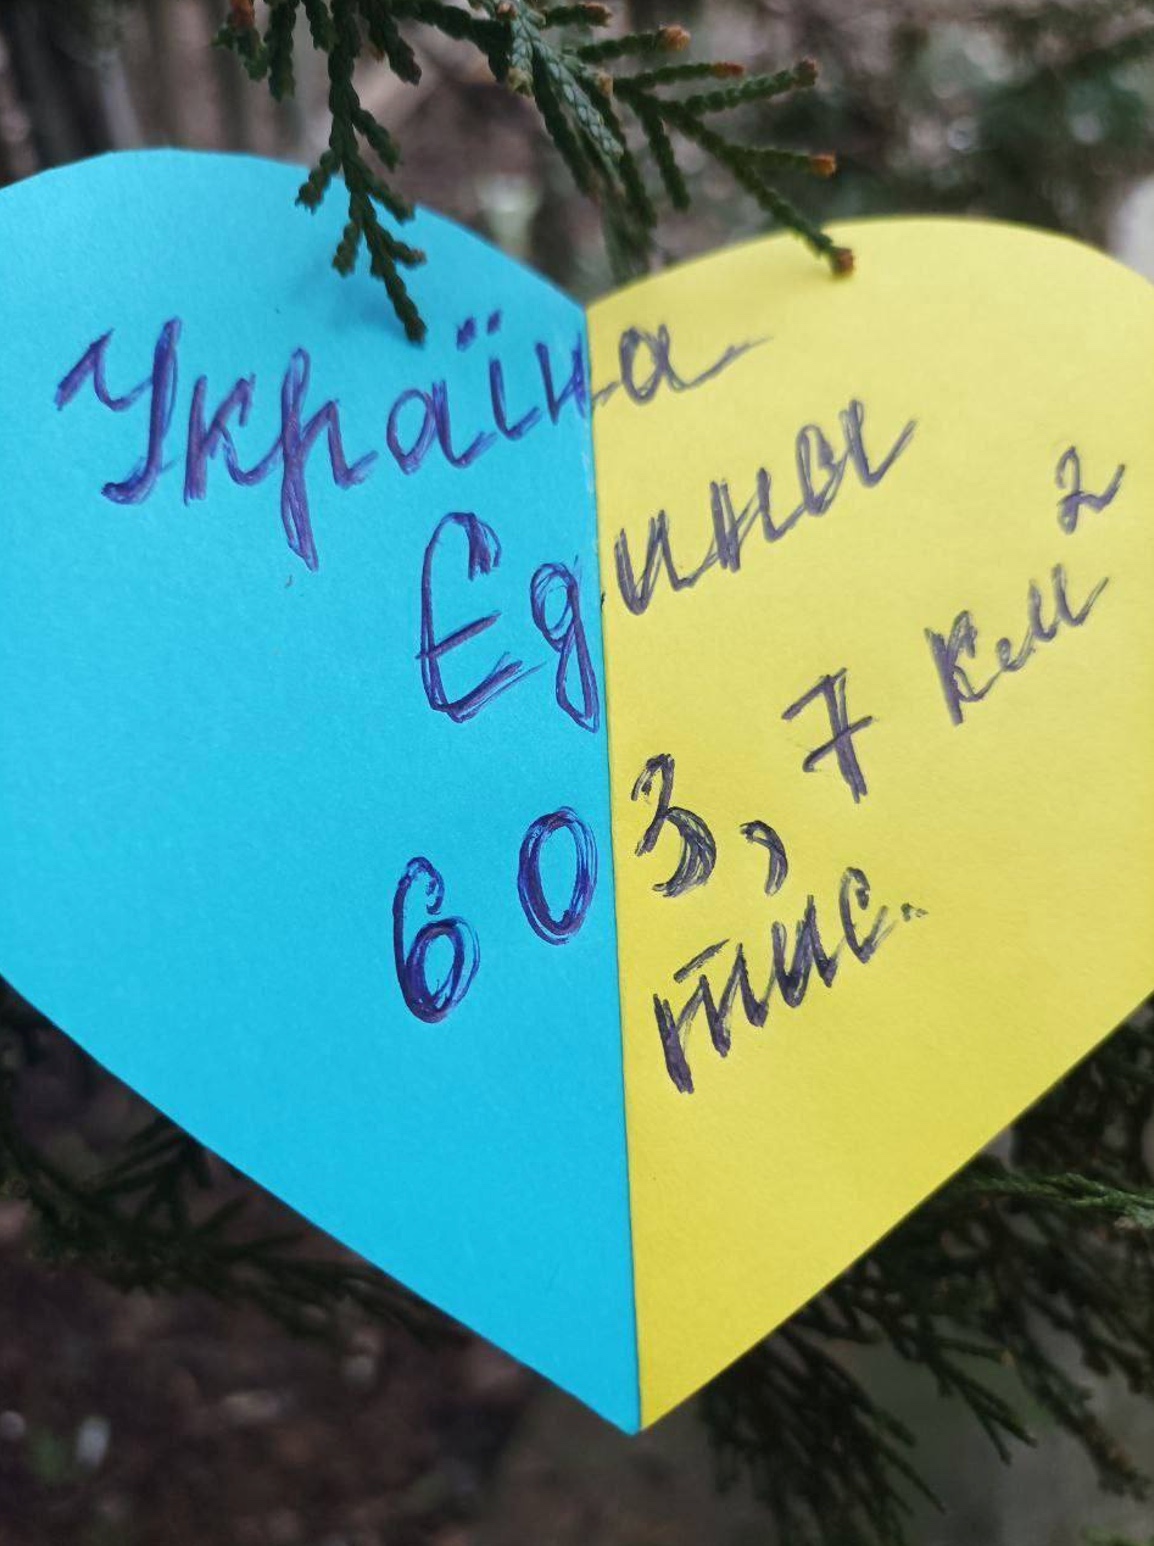 Україна
Едины
603,7 км²
тис.